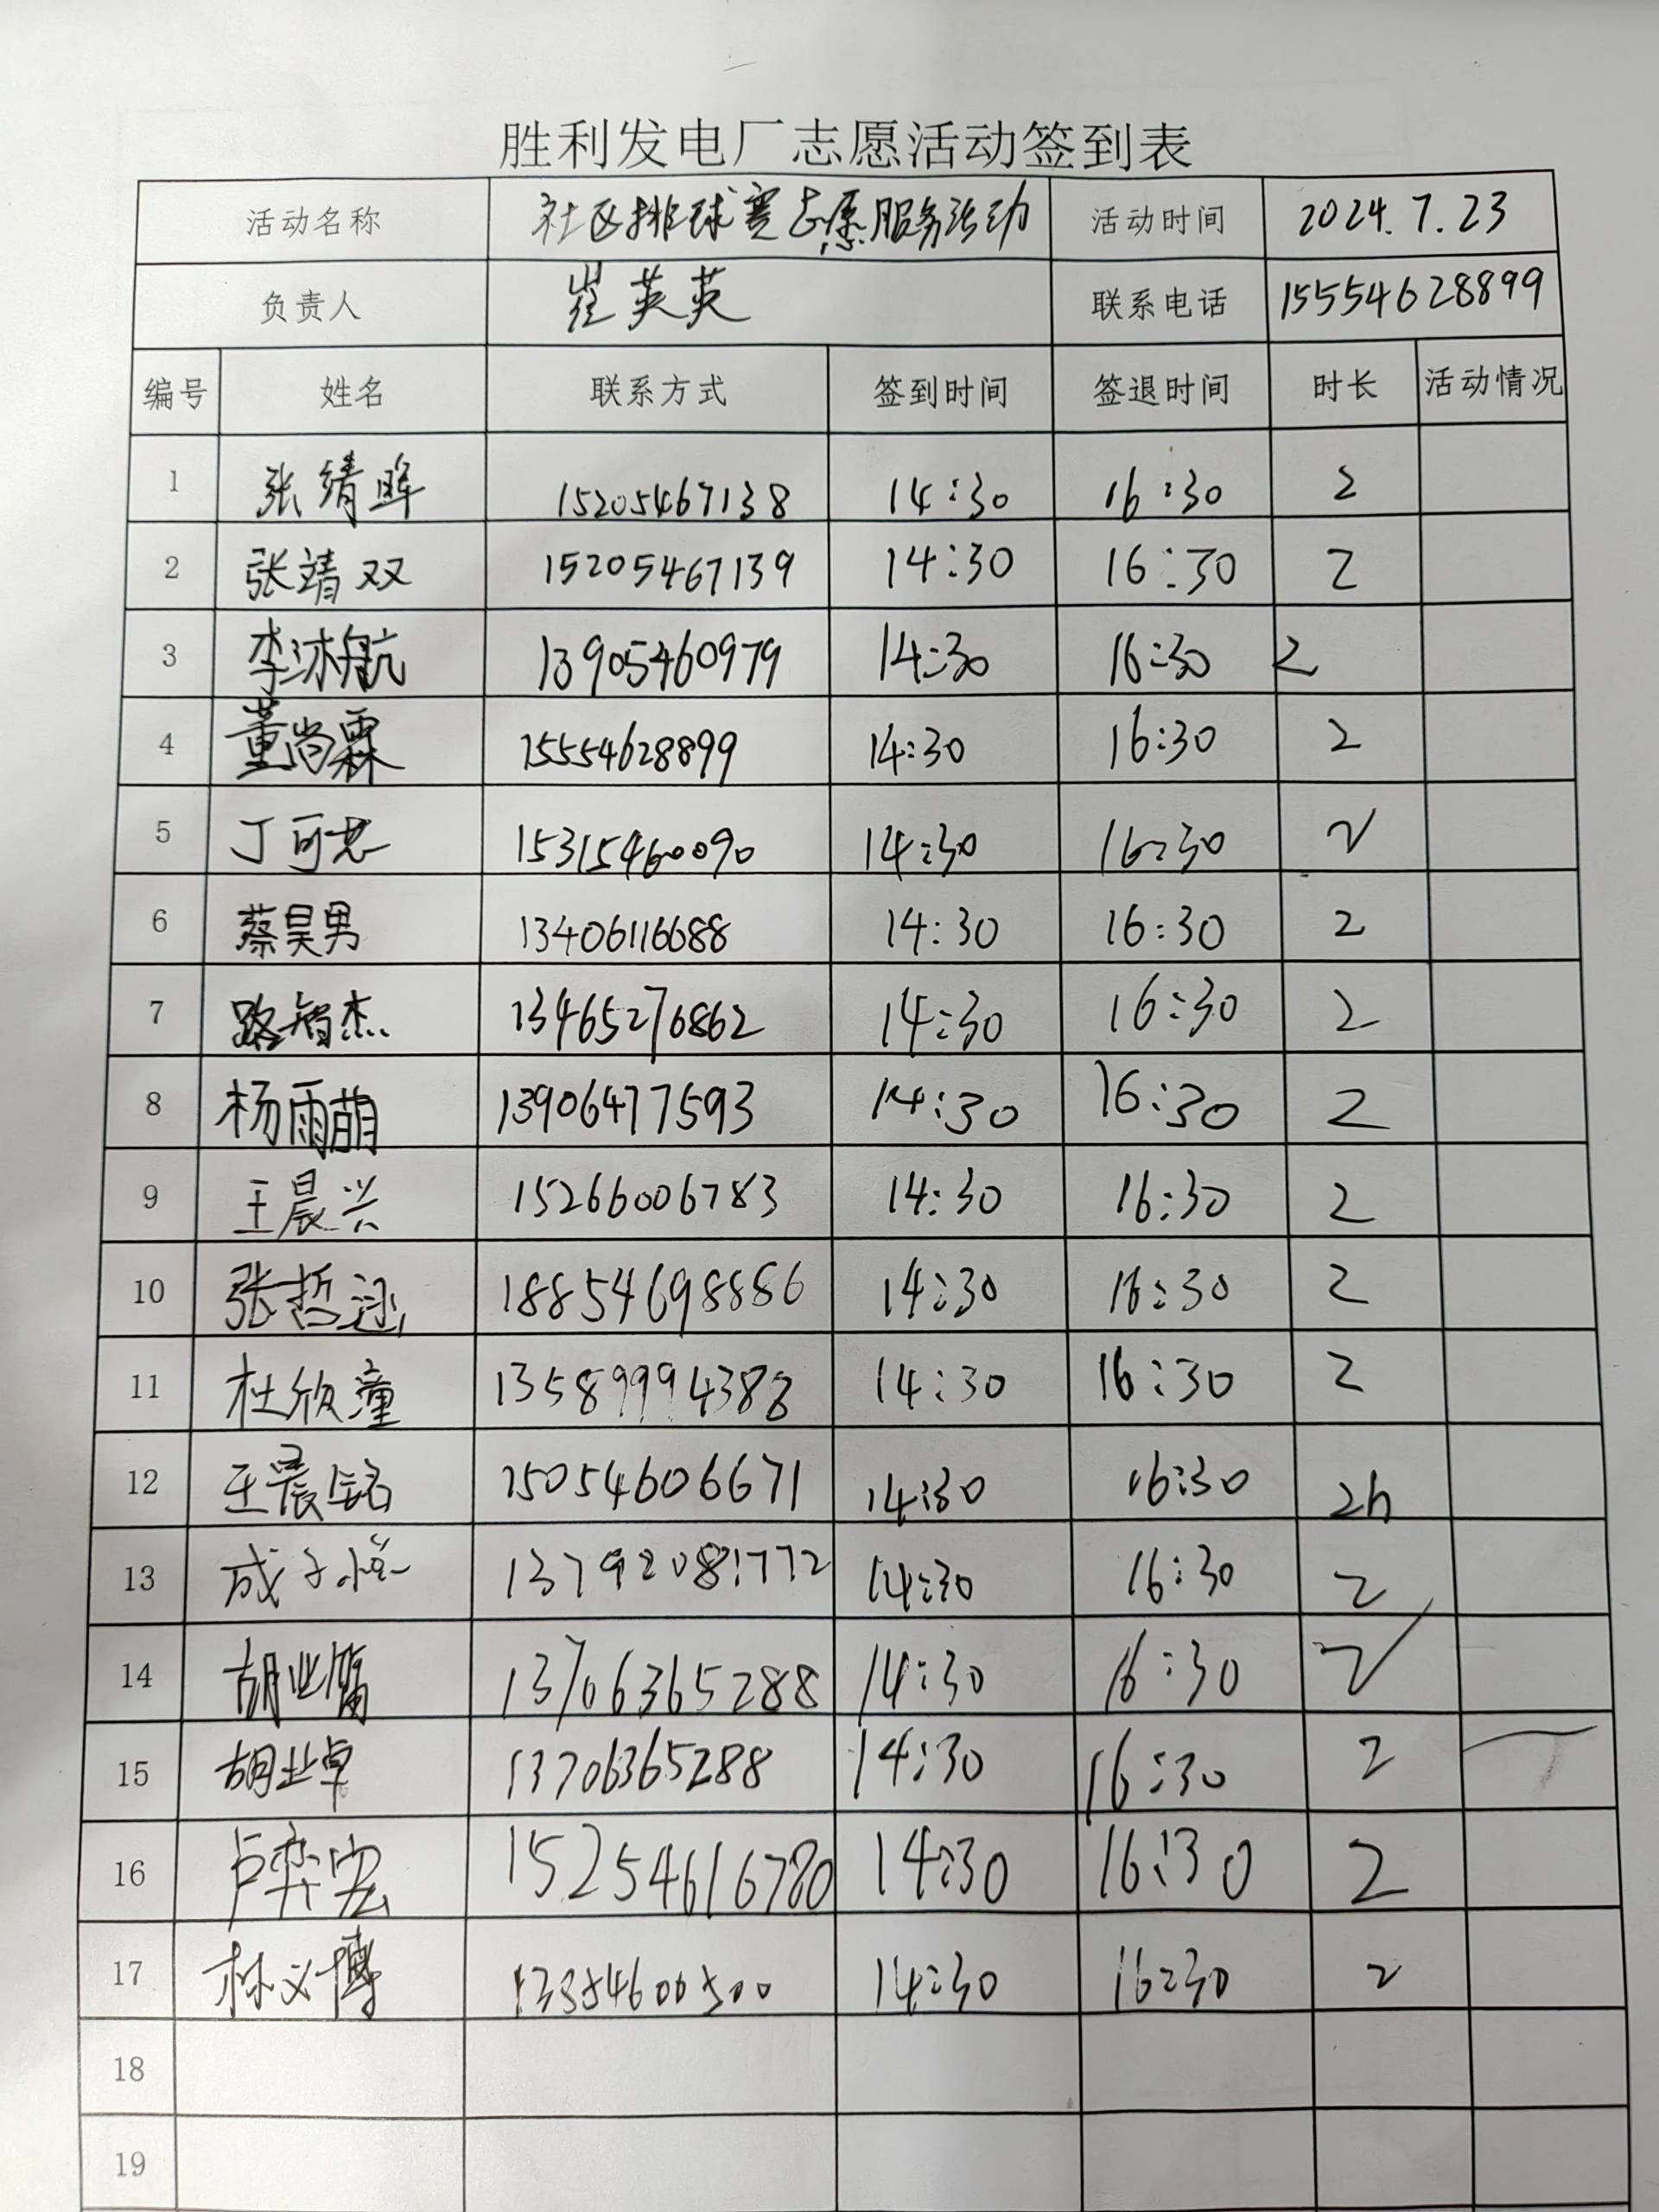 胜利发电厂志愿活动签到表
活动名称 社区排球赛志愿服务活动 活动时间 2024.7.23
负责人 崔英英 联系电话 15554628899
编号 姓名 联系方式 签到时间 签退时间 时长 活动情况
1 张靖晖 15205467138 14:30 16:30 2
2 张靖双 15205467139 14:30 16:30 2
3 李沐航 13905460979 14:30 16:30 2
4 董尚霖 15554628899 14:30 16:30 2
5 丁可 15315460090 14:30 16:30 2
6 蔡昊男 13406116688 14:30 16:30 2
7 路智杰 13465276862 14:30 16:30 2
8 杨雨萌 13906477593 14:30 16:30 2
9 王晨兴 15266006783 14:30 16:30 2
10 张哲 18854698886 14:30 16:30 2
11 杜欣潼 13589994388 14:30 16:30 2
12 王晨铭 15054606671 14:30 16:30 2h
13 成子 13792081772 14:30 16:30 2
14 胡业 13706365288 14:30 16:30 2
15 胡业卓 13706365288 14:30 16:30 2
16 卢弈宏 15254616780 14:30 16:30 2
17 林义博 14:30 16:30 2
18
19